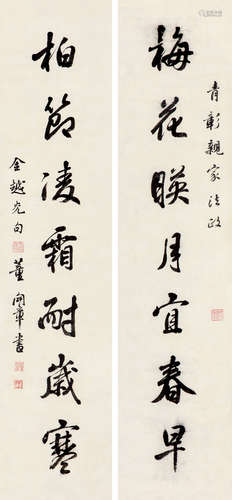 青彰親家法政
梅花暎月宜春早
柏節凌霜耐歲寒
金越光句
董開章書